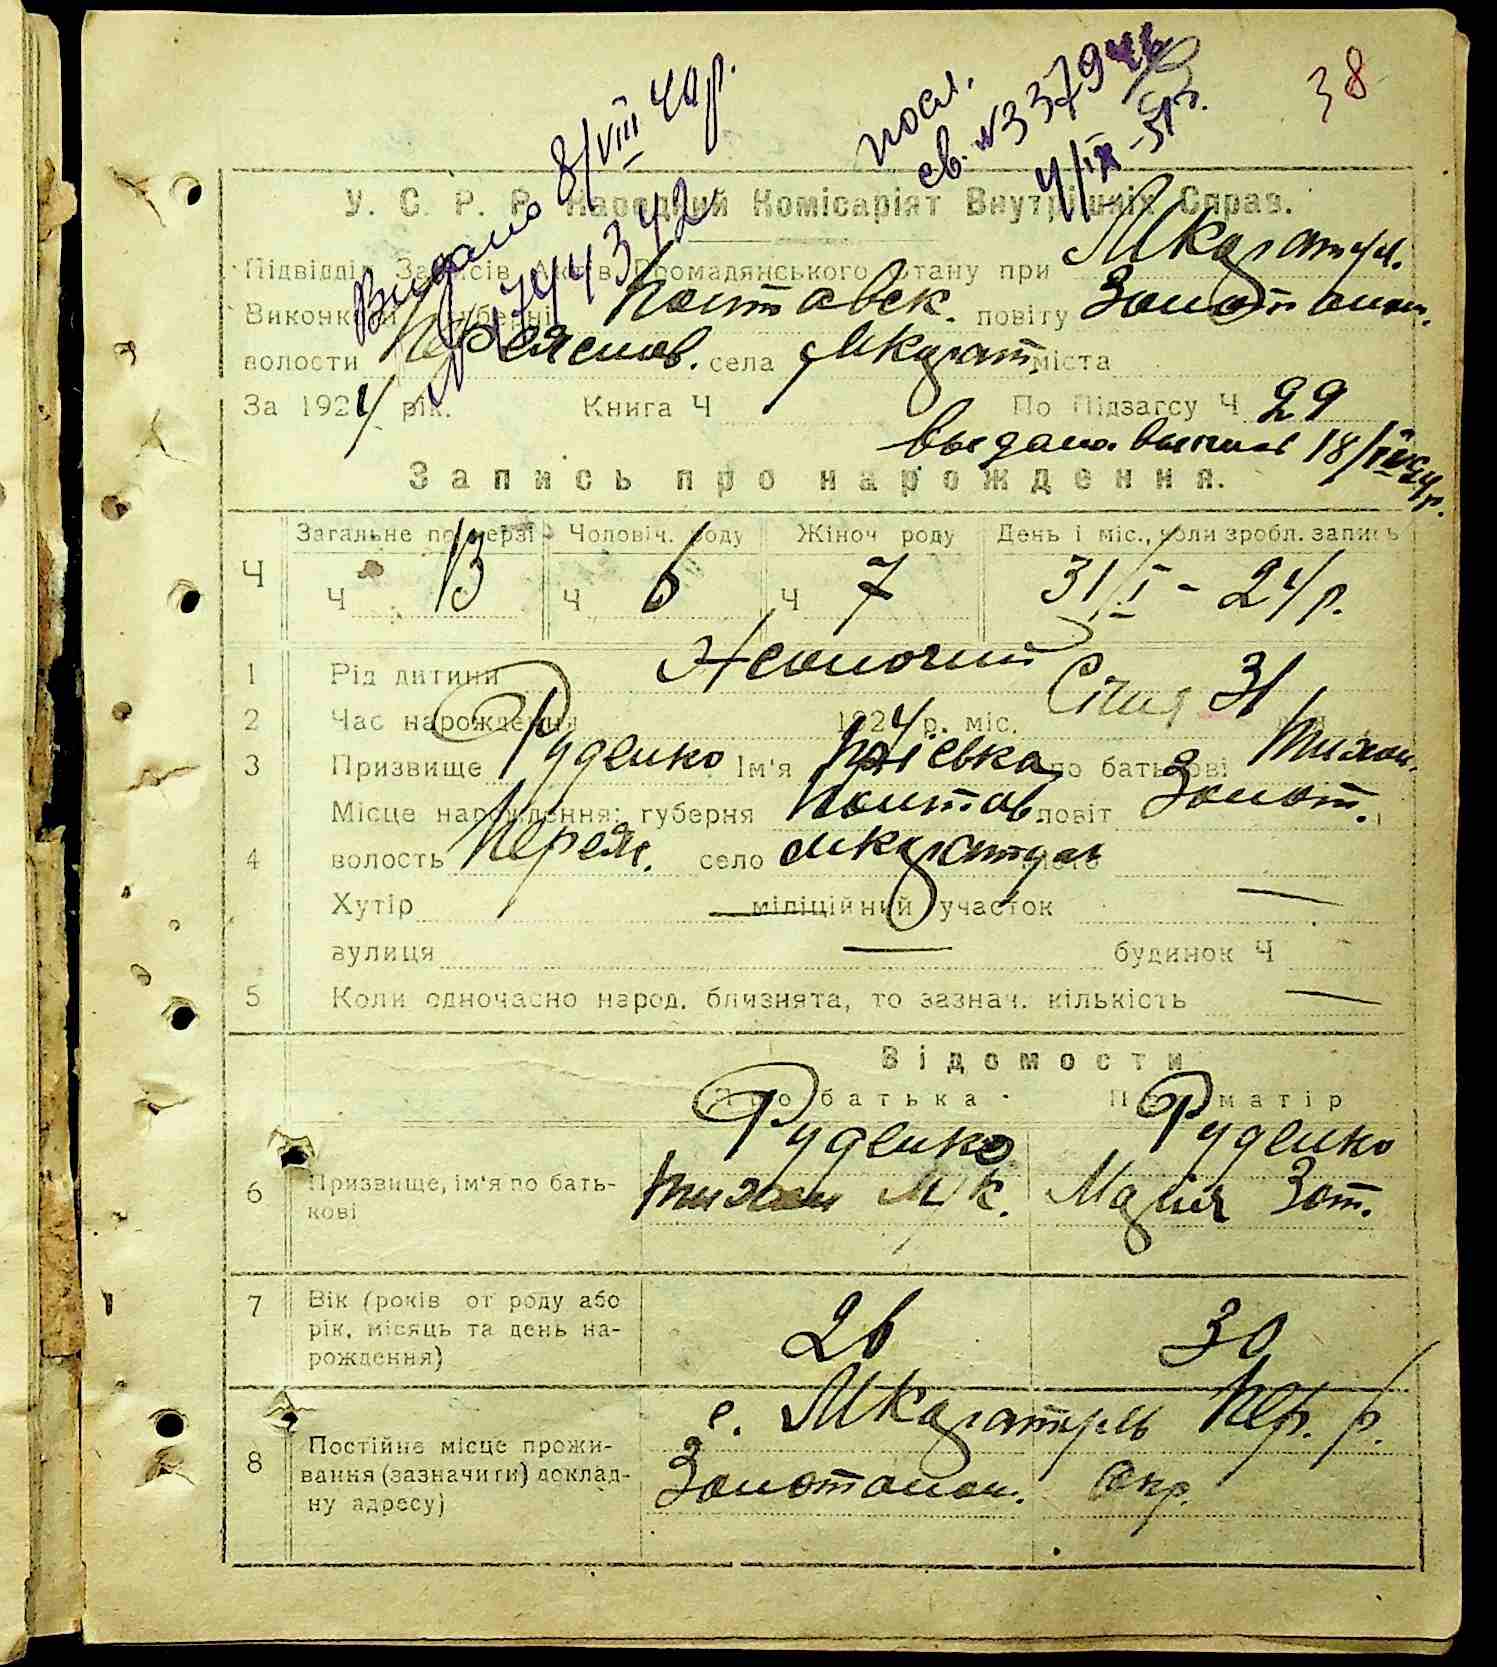 38
Видано 8/VIII 40 р.
посл.
св. № 3379
4/IX-51 г.
У. С. Р. Р. Народний Комісаріят Внутрішніх Справ.
Підвідділ Записів Актів Громадянського Стану при
Виконкомі губерні Полтавск. повіту Золотонош.
волости Переяслов. села міста
За 1924 рік. Книга Ч По Підзагсу Ч 29
18/
Запись про народження.
Ч Загальне по черзі Чоловіч. роду Жіноч роду День і міс., коли зробл. запись
Ч 13 Ч 6 Ч 7 31/I - 24 р.
1 Рід дитини
2 Час народження 1924 р. міс. Січня 31 дня
3 Призвище Руденко Ім'я по батькові Тихон.
4 Місце народження: губерня Полтав повіт Золот.
волость Переяс. село місто
Хутір — міліційний участок —
вулиця — будинок Ч
5 Коли одночасно народ. близнята, то зазнач. кількість —
Відомости
Про батька Про матір
6 Призвище, ім'я по батькові Руденко Руденко
Тихон Марія Зот.
7 Вік (років от роду або рік, місяць та день народження) 26 30
8 Постійне місце проживання (зазначити) докладну адресу) с. Пер. р.
Золотонош. Окр.